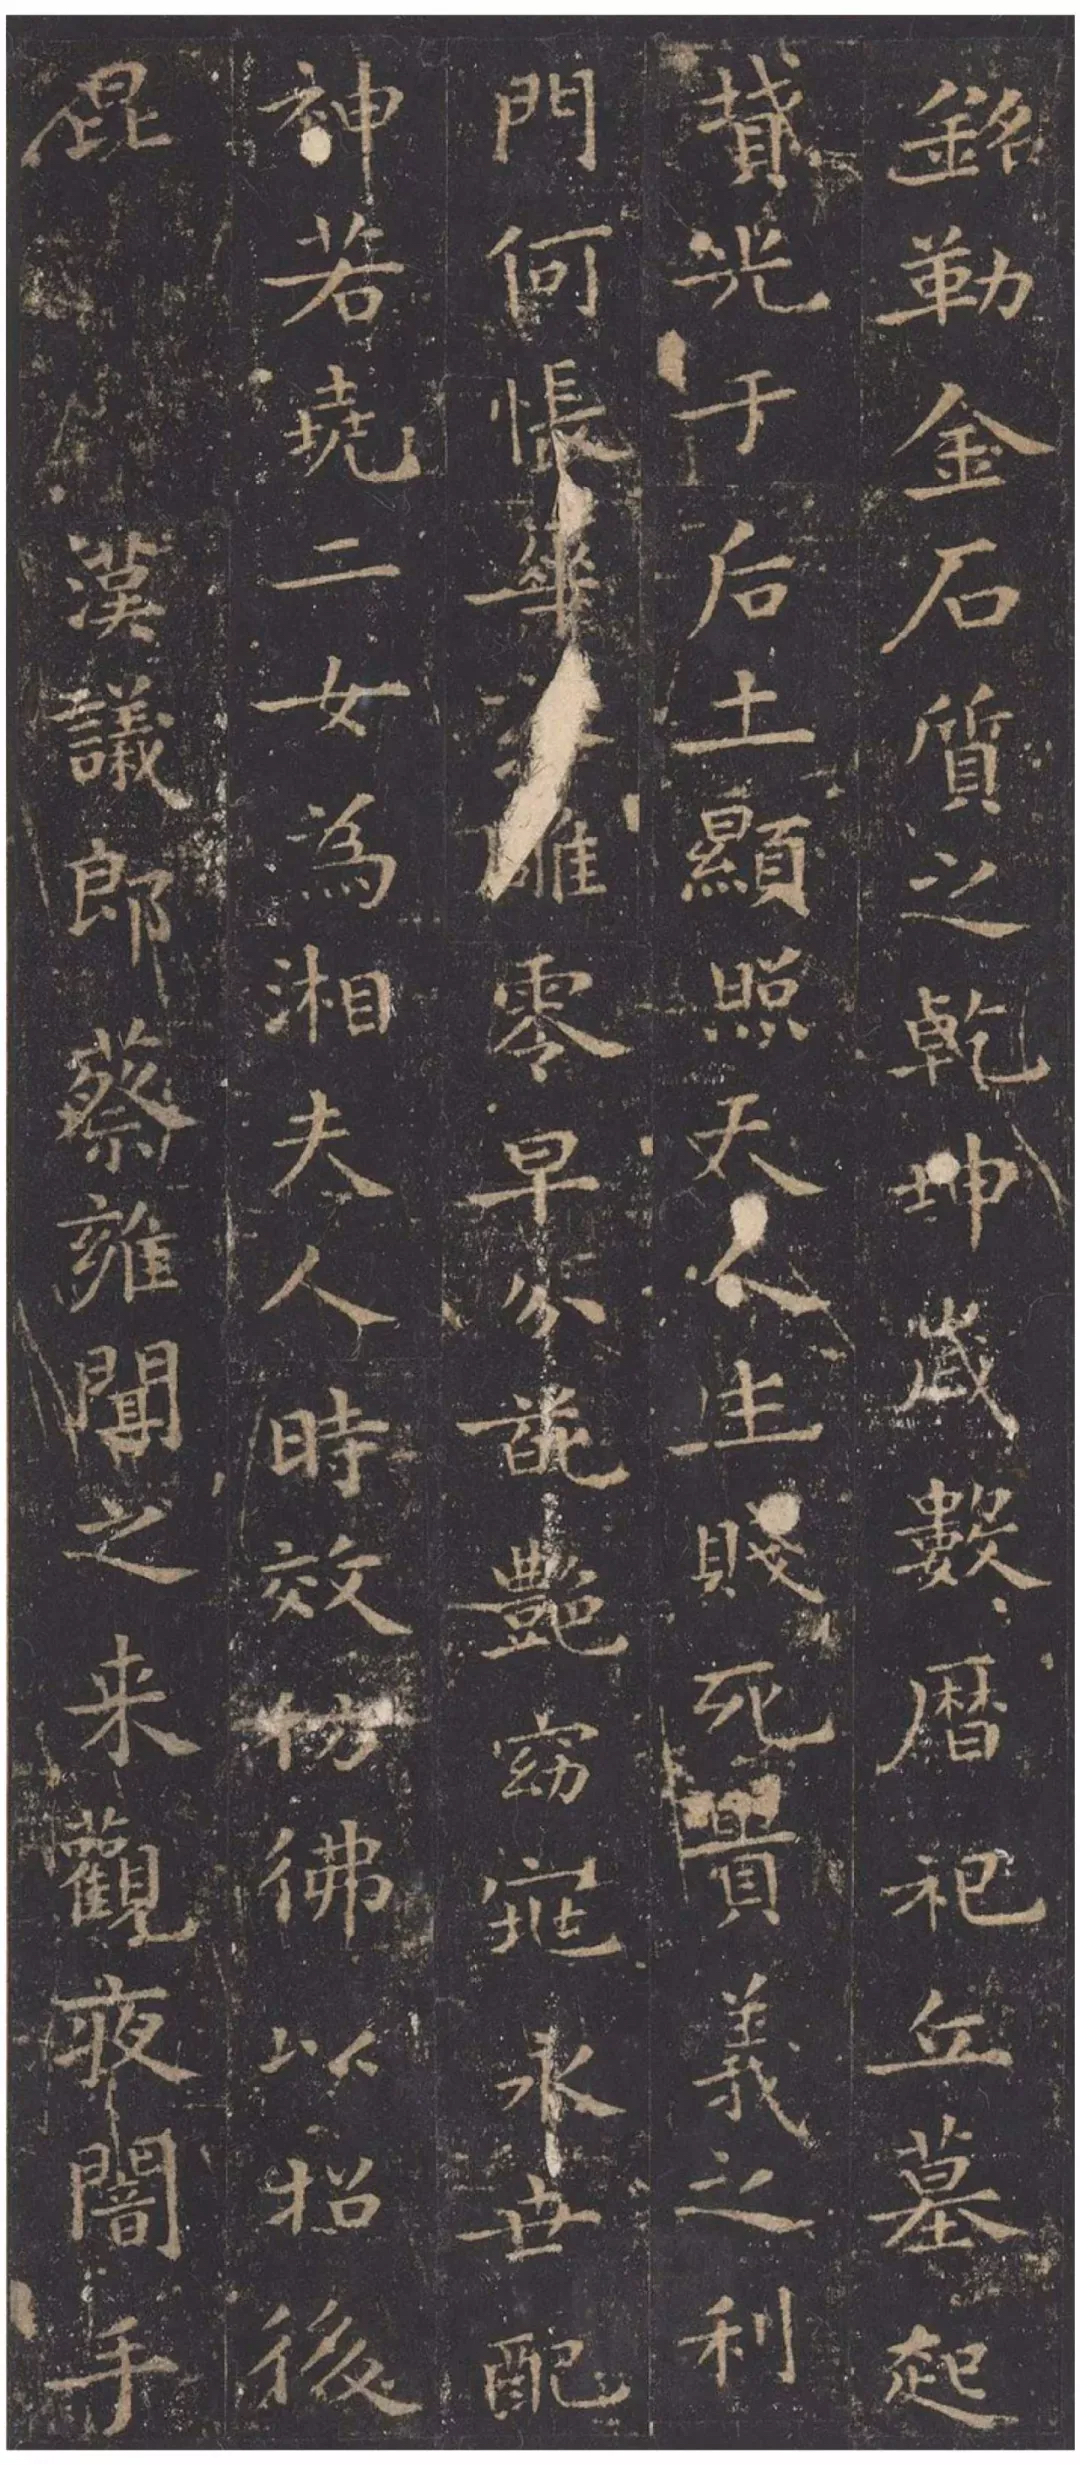 銘勒金石質之乾坤歲數暦祀丘墓起
墳光于后土顯照天人生賤死貴義之利
門何悵華雕零早分葩艷窈窕永世配
神若堯二女為湘夫人時效仿彿以招後
昆 漢議郎蔡雍聞之来觀夜闇手